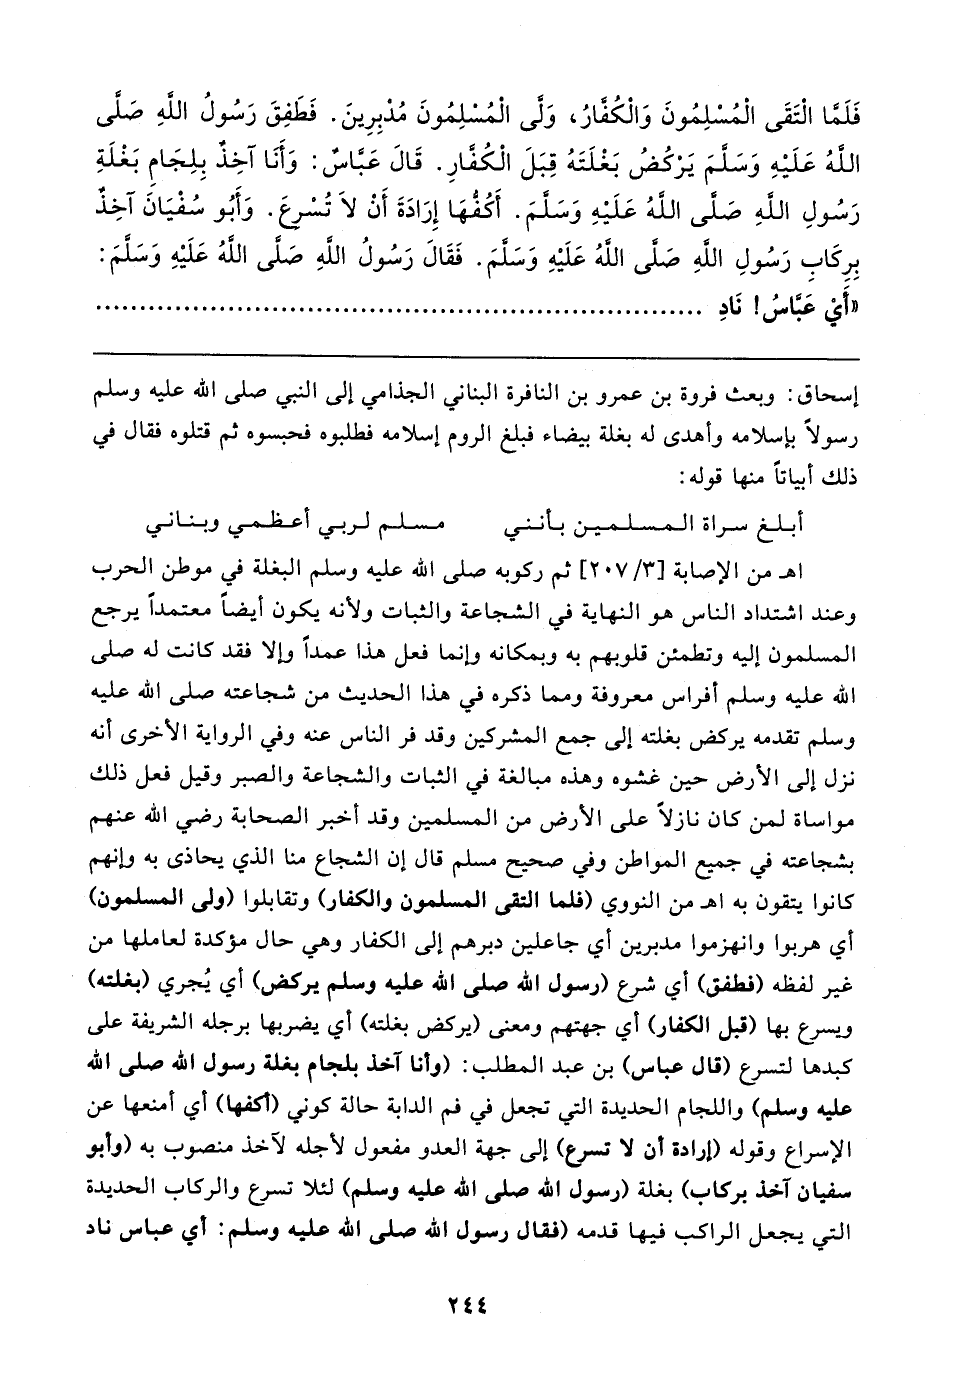 فَلَمَّا الْتَقَى الْمُسْلِمُونَ وَالْكُفَّارُ، وَلَّى الْمُسْلِمُونَ مُدْبِرِينَ. فَطَفِقَ رَسُولُ اللَّهِ صَلَّى
اللَّهُ عَلَيْهِ وَسَلَّمَ يَرْكُضُ بَغْلَتَهُ قِبَلَ الْكُفَّارِ. قَالَ عَبَّاسٌ: وَأَنَا آخِذٌ بِلِجَامِ بَغْلَةِ
رَسُولِ اللَّهِ صَلَّى اللَّهُ عَلَيْهِ وَسَلَّمَ. أَكُفُّهَا إِرَادَةَ أَنْ لاَ تُسْرِعَ. وَأَبُو سُفْيَانَ آخِذٌ
بِرِكَابِ رَسُولِ اللَّهِ صَلَّى اللَّهُ عَلَيْهِ وَسَلَّمَ. فَقَالَ رَسُولُ اللَّهِ صَلَّى اللَّهُ عَلَيْهِ وَسَلَّمَ:
«أَيْ عَبَّاسُ! نَادِ ................................................................
إسحاق: وبعث فروة بن عمرو بن النافرة البناني الجذامي إلى النبي صلى الله عليه وسلم
رسولاً بإسلامه وأهدى له بغلة بيضاء فبلغ الروم إسلامه فطلبوه فحبسوه ثم قتلوه فقال في
ذلك أبياتاً منها قوله:
أبلغ سراة المسلمين بأنني    مسلم لربي أعظمي وبناني
اهـ من الإصابة [٢٠٧/٣] ثم ركوبه صلى الله عليه وسلم البغلة في موطن الحرب
وعند اشتداد الناس هو النهاية في الشجاعة والثبات ولأنه يكون أيضاً معتمداً يرجع
المسلمون إليه وتطمئن قلوبهم به وبمكانه وإنما فعل هذا عمداً وإلا فقد كانت له صلى
الله عليه وسلم أفراس معروفة ومما ذكره في هذا الحديث من شجاعته صلى الله عليه
وسلم تقدمه يركض بغلته إلى جمع المشركين وقد فر الناس عنه وفي الرواية الأخرى أنه
نزل إلى الأرض حين غشوه وهذه مبالغة في الثبات والشجاعة والصبر وقيل فعل ذلك
مواساة لمن كان نازلاً على الأرض من المسلمين وقد أخبر الصحابة رضي الله عنهم
بشجاعته في جميع المواطن وفي صحيح مسلم قال إن الشجاع منا الذي يحاذى به وإنهم
كانوا يتقون به اهـ من النووي (فلما التقى المسلمون والكفار) وتقابلوا (ولى المسلمون)
أي هربوا وانهزموا مدبرين أي جاعلين دبرهم إلى الكفار وهي حال مؤكدة لعاملها من
غير لفظه (فطفق) أي شرع (رسول الله صلى الله عليه وسلم يركض) أي يُجري (بغلته)
ويسرع بها (قبل الكفار) أي جهتهم ومعنى (يركض بغلته) أي يضربها برجله الشريفة على
كبدها لتسرع (قال عباس) بن عبد المطلب: (وأنا آخذ بلجام بغلة رسول الله صلى الله
عليه وسلم) واللجام الحديدة التي تجعل في فم الدابة حالة كوني (أكفها) أي أمنعها عن
الإسراع وقوله (إرادة أن لا تسرع) إلى جهة العدو مفعول لأجله لآخذ منصوب به (وأبو
سفيان آخذ بركاب) بغلة (رسول الله صلى الله عليه وسلم) لئلا تسرع والركاب الحديدة
التي يجعل الراكب فيها قدمه (فقال رسول الله صلى الله عليه وسلم: أي عباس ناد
٢٤٤